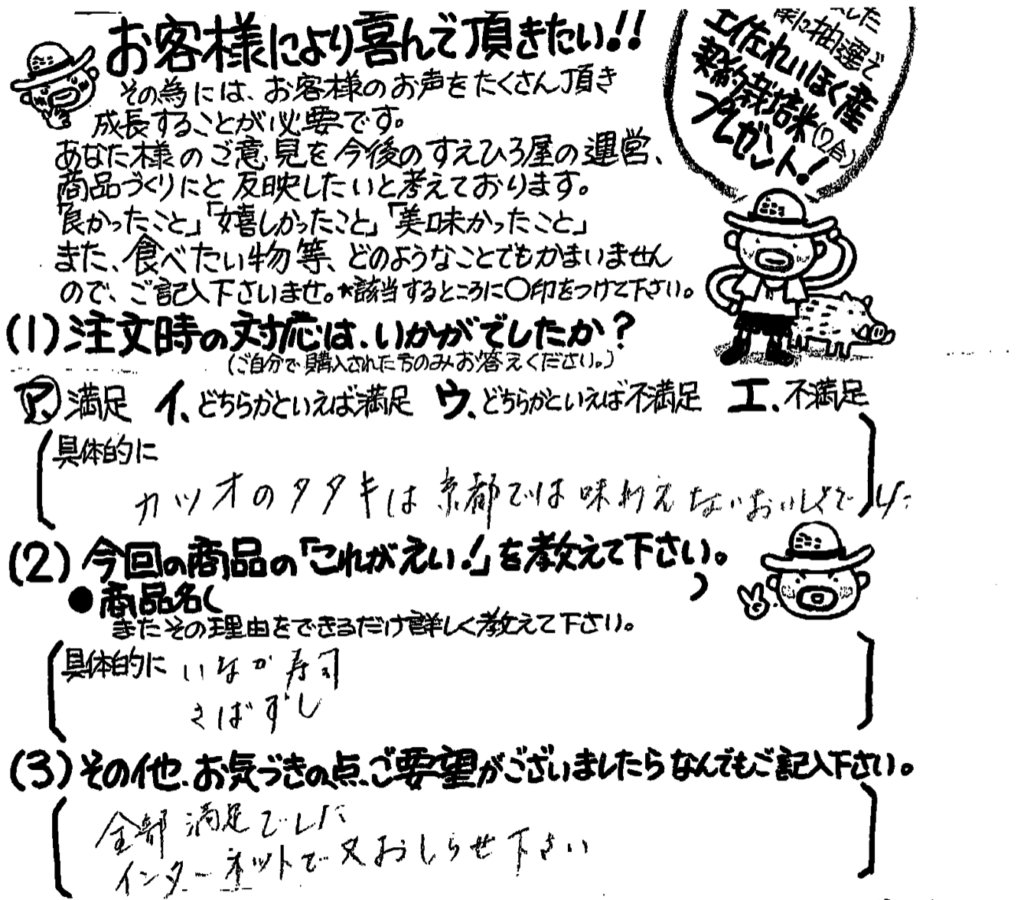 お客様により喜んで頂きたい!!
その為には、お客様のお声をたくさん頂き
成長することが必要です。
あなた様のご意見を今後のすえひろ屋の運営、
商品づくりにと反映したいと考えております。
「良かったこと」「嬉しかったこと」「美味かったこと」
また、食べたい物等、どのようなことでもかまいません
ので、ご記入下さいませ。*該当するところに○印をつけて下さい。
した
様に抽選で
土佐れいほく産
契約栽培米(2合)
プレゼント!
(1)注文時の対応は、いかがでしたか?
(ご自分で購入された方のみお答えください。)
ア、満足 イ、どちらかといえば満足 ウ、どちらかといえば不満足 エ、不満足
具体的に
カツオのタタキは京都では味わえないおいしさでした
(2)今回の商品の「これがえい!」を教えて下さい。
●商品名( )
またその理由をできるだけ詳しく教えて下さい。
具体的に いなか寿司
さばずし
(3)その他、お気づきの点、ご要望がございましたらなんでもご記入下さい。
全部満足でした
インターネットで又おしらせ下さい